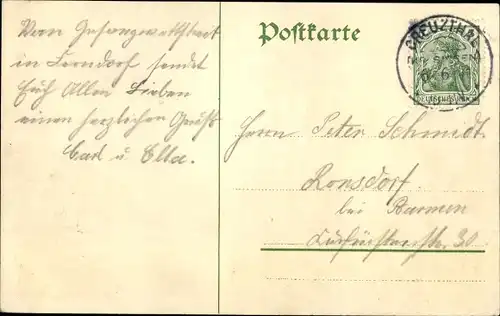 Postkarte
CREUZTHAL
Vom Gesangwettstreit
in Ferndorf sendet
Euch Allen Lieben
einen herzlichen Gruß
Carl u. Ella.
Herrn Peter Schmidt
Ronsdorf
bei Barmen
Kurfürstenstr. 30